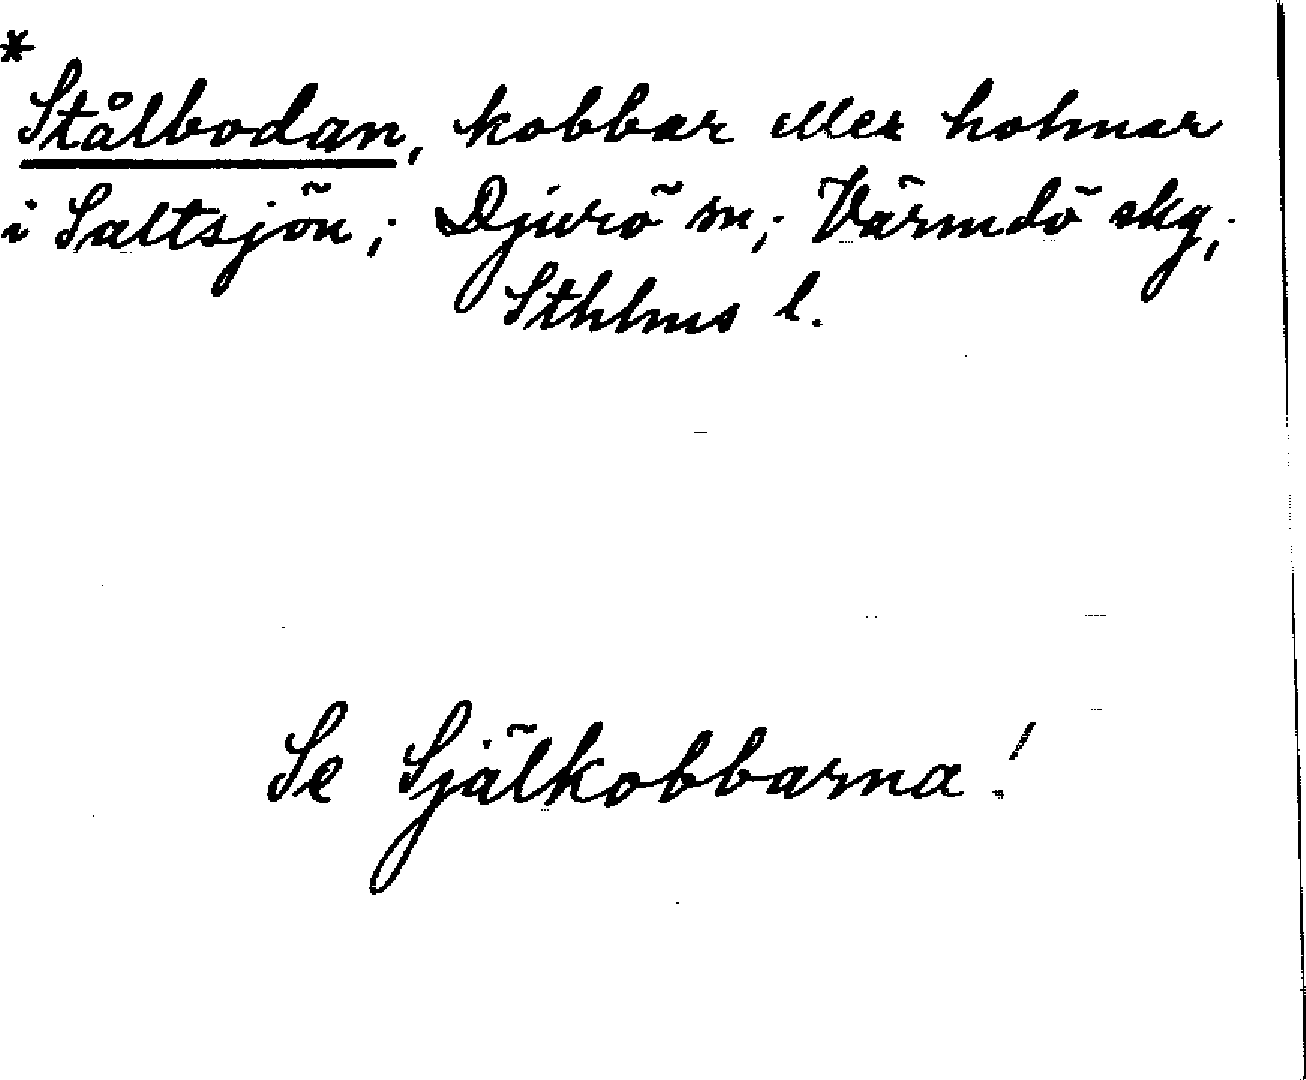 *
Stålbodan, kobbar eller holmar
i Saltsjön; Djurö sn; Värmdö skg;
Sthlms l.
Se Själkobbarna!